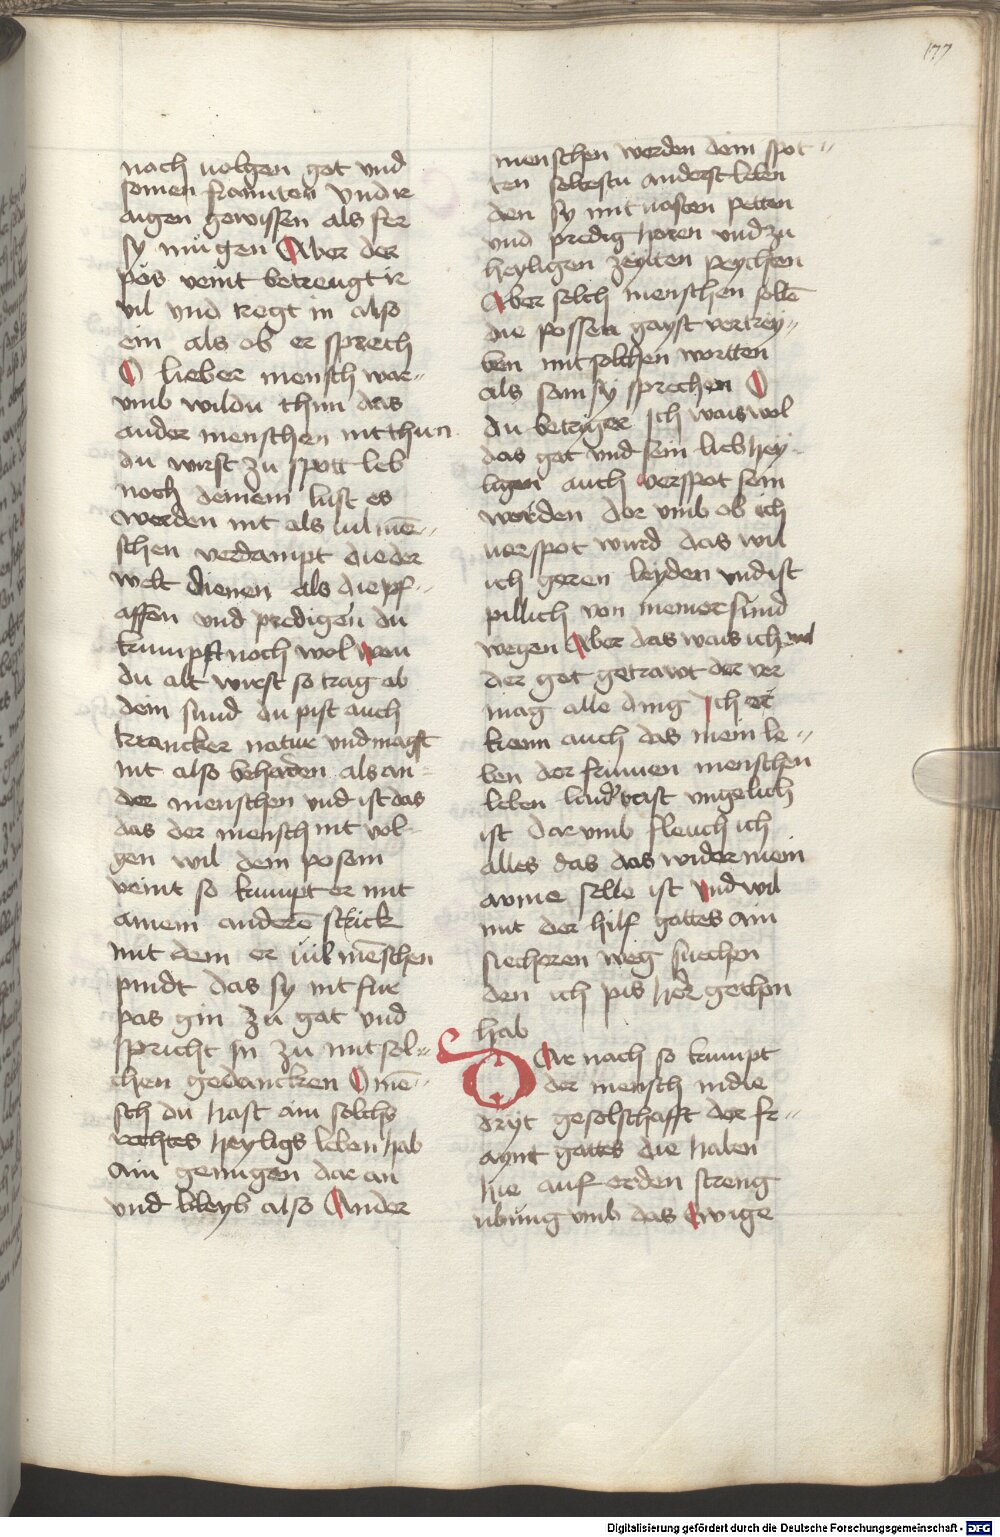 177
noch uolgen got und
seinen frainten Vnd ir
aigen gewissen als fer
sy mügen Aber der
pös veint betreugt ir
vil und tregt in also
ein als ob er sprech
O lieber mensch war-
vmb wildu thun das
ander menschen nit thun
du wirst zu spott leb
noch deinem lust es
werden nit als uil mē-
schen verdampt die der
welt dienen als die pf-
affen und predigen du
kumpst noch wol wen
du alt wirst so trag ab
dein sund du pist auch
krancker natur vnd magst
nit also beharden als an-
der menschen vnd ist das
das der mensch nit vol-
gen wil dem posem
veint so kumpt er mit
ainem anderē strick
mit dem er uil mēschen
pindt das sy nit fur
pas gin zu got vnd
spricht in zu mit sol-
chen gedancken O mē-
sch du hast ain solchs
rechtes heyligs leben hab
Ain genugen dar an
vnd bleyb also Ander
menschen werden dein spot-
ten soltestu anderst leben
den sy mit uasten petten
vnd predig horen vnd zu
heyligen zeyten peychten
Aber solch menschen sollē
die possen gayst vertrey-
ben mit solchen wortten
als sam sy sprechen O
du betriger ich wais wol
das got und sein lieb hey-
ligen auch verspot sein
worden dor vmb ob ich
uerspot wurd das wil
ich geren leyden vnd ist
pillich von meiner sund
wegen Aber das wais ich wol
der got getrawt der ver
mag alle ding Ich er
kenn auch das mein le-
ben der frumen menschen
leben laider vast vngelich
ist dar vmb fleuch ich
alles das das wider mein
arme selle ist vnd wil
mit der hilf gottes Ain
siecheren weg suechen
den ich pis her gethon
hab
DAr nach so kumpt
der mensch in die
dryt geselschafft der fr-
aynt gottes die haben
hie auf erden streng
ubung vmb das Ewige
Digitalisierung gefördert durch die Deutsche Forschungsgemeinschaft - DFG